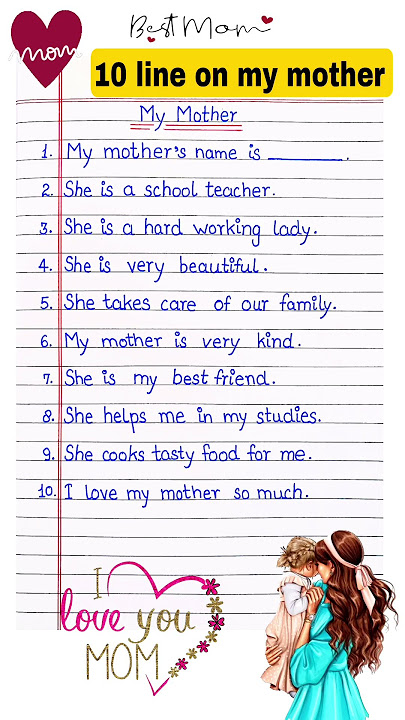 Best Mom
mom
10 line on my mother
My Mother
1. My mother's name is ________.
2. She is a school teacher.
3. She is a hard working lady.
4. She is very beautiful.
5. She takes care of our family.
6. My mother is very kind.
7. She is my best friend.
8. She helps me in my studies.
9. She cooks tasty food for me.
10. I love my mother so much.
I
love you
MOM